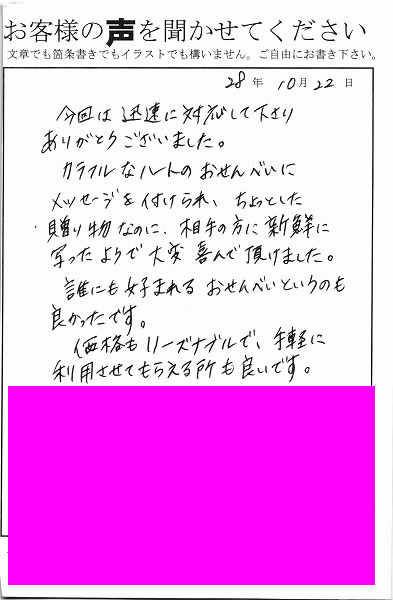 お客様の声を聞かせてください
文章でも箇条書きでもイラストでも構いません。ご自由にお書き下さい。
28年 10月 22日
今回は迅速に対応して下さり
ありがとうございました。
カラフルなハートのおせんべいに
メッセージを付けられ、ちょっとした
贈り物なのに、相手の方に新鮮に
写ったようで大変喜んで頂けました。
誰にも好まれるおせんべいというのも
良かったです。
価格もリーズナブルで、手軽に
利用させてもらえる所も良いです。